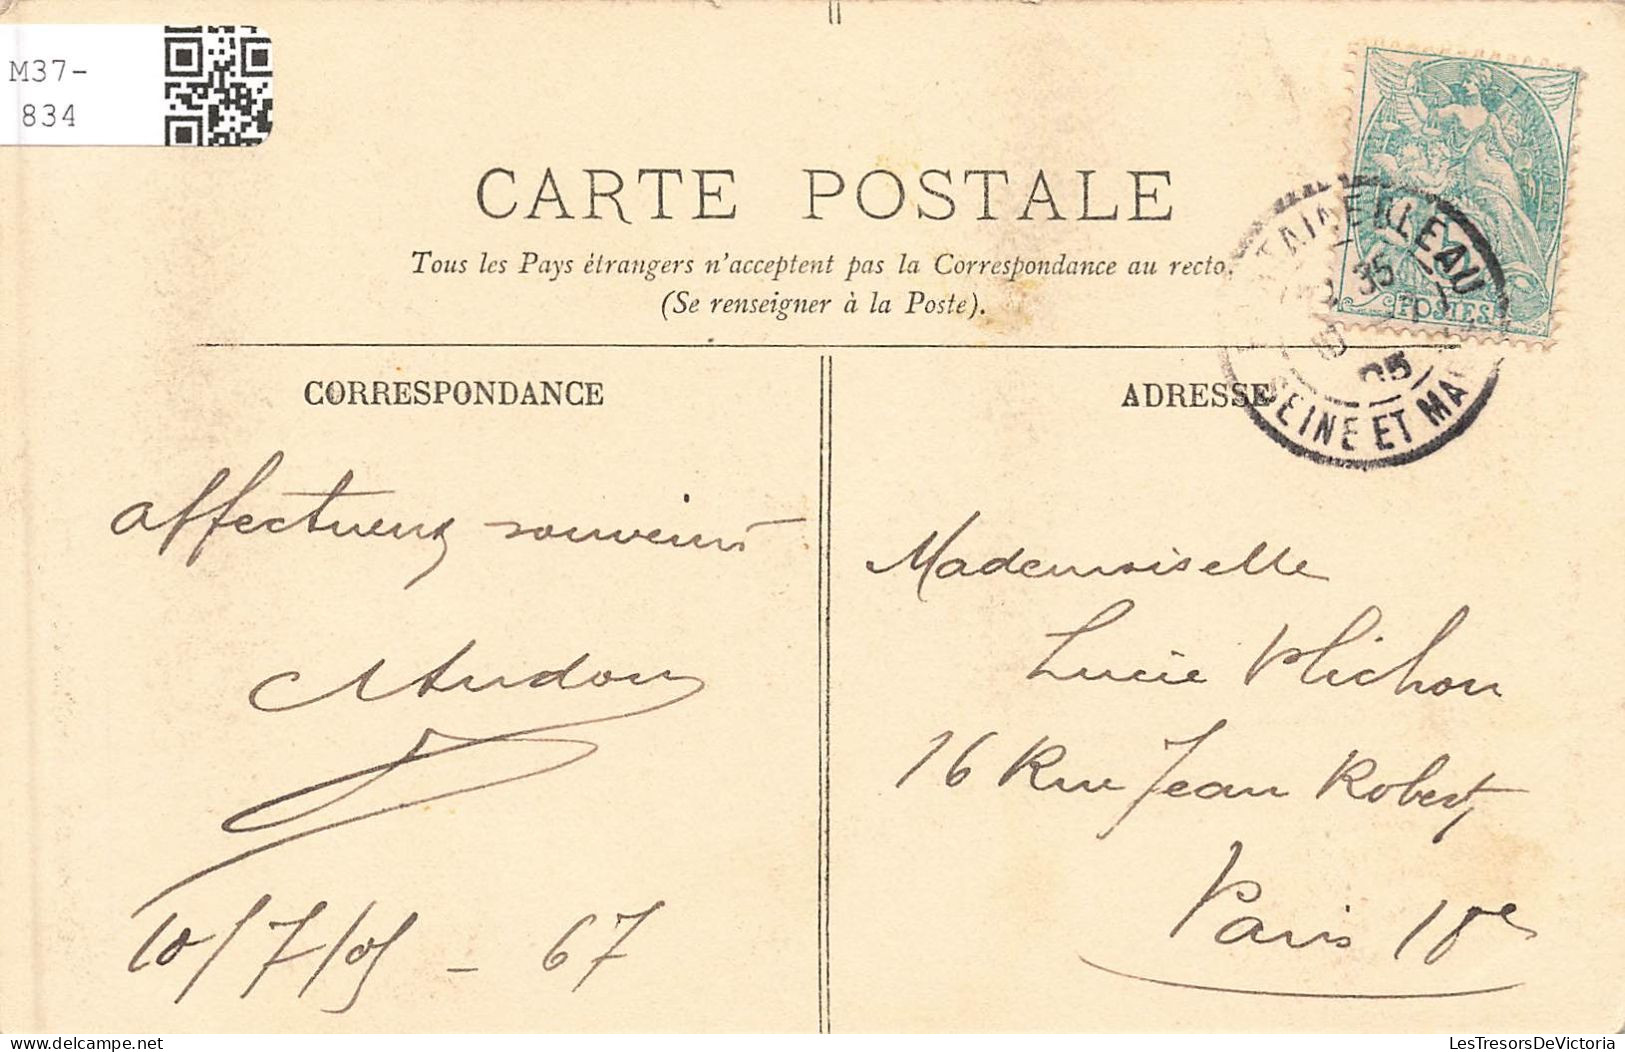 M37-
834
CARTE POSTALE
Tous les Pays étrangers n'acceptent pas la Correspondance au recto.
(Se renseigner à la Poste).
CORRESPONDANCE
ADRESSE
TAINEBLEAU
35
05
SEINE ET MA
POSTES
affectueux souvenirs
10/7/05 - 67
Mademoiselle
Lucie Plichon
16 Rue Jean Robert,
Paris 18e
delcampe.net
LesTresorsDeVictoria